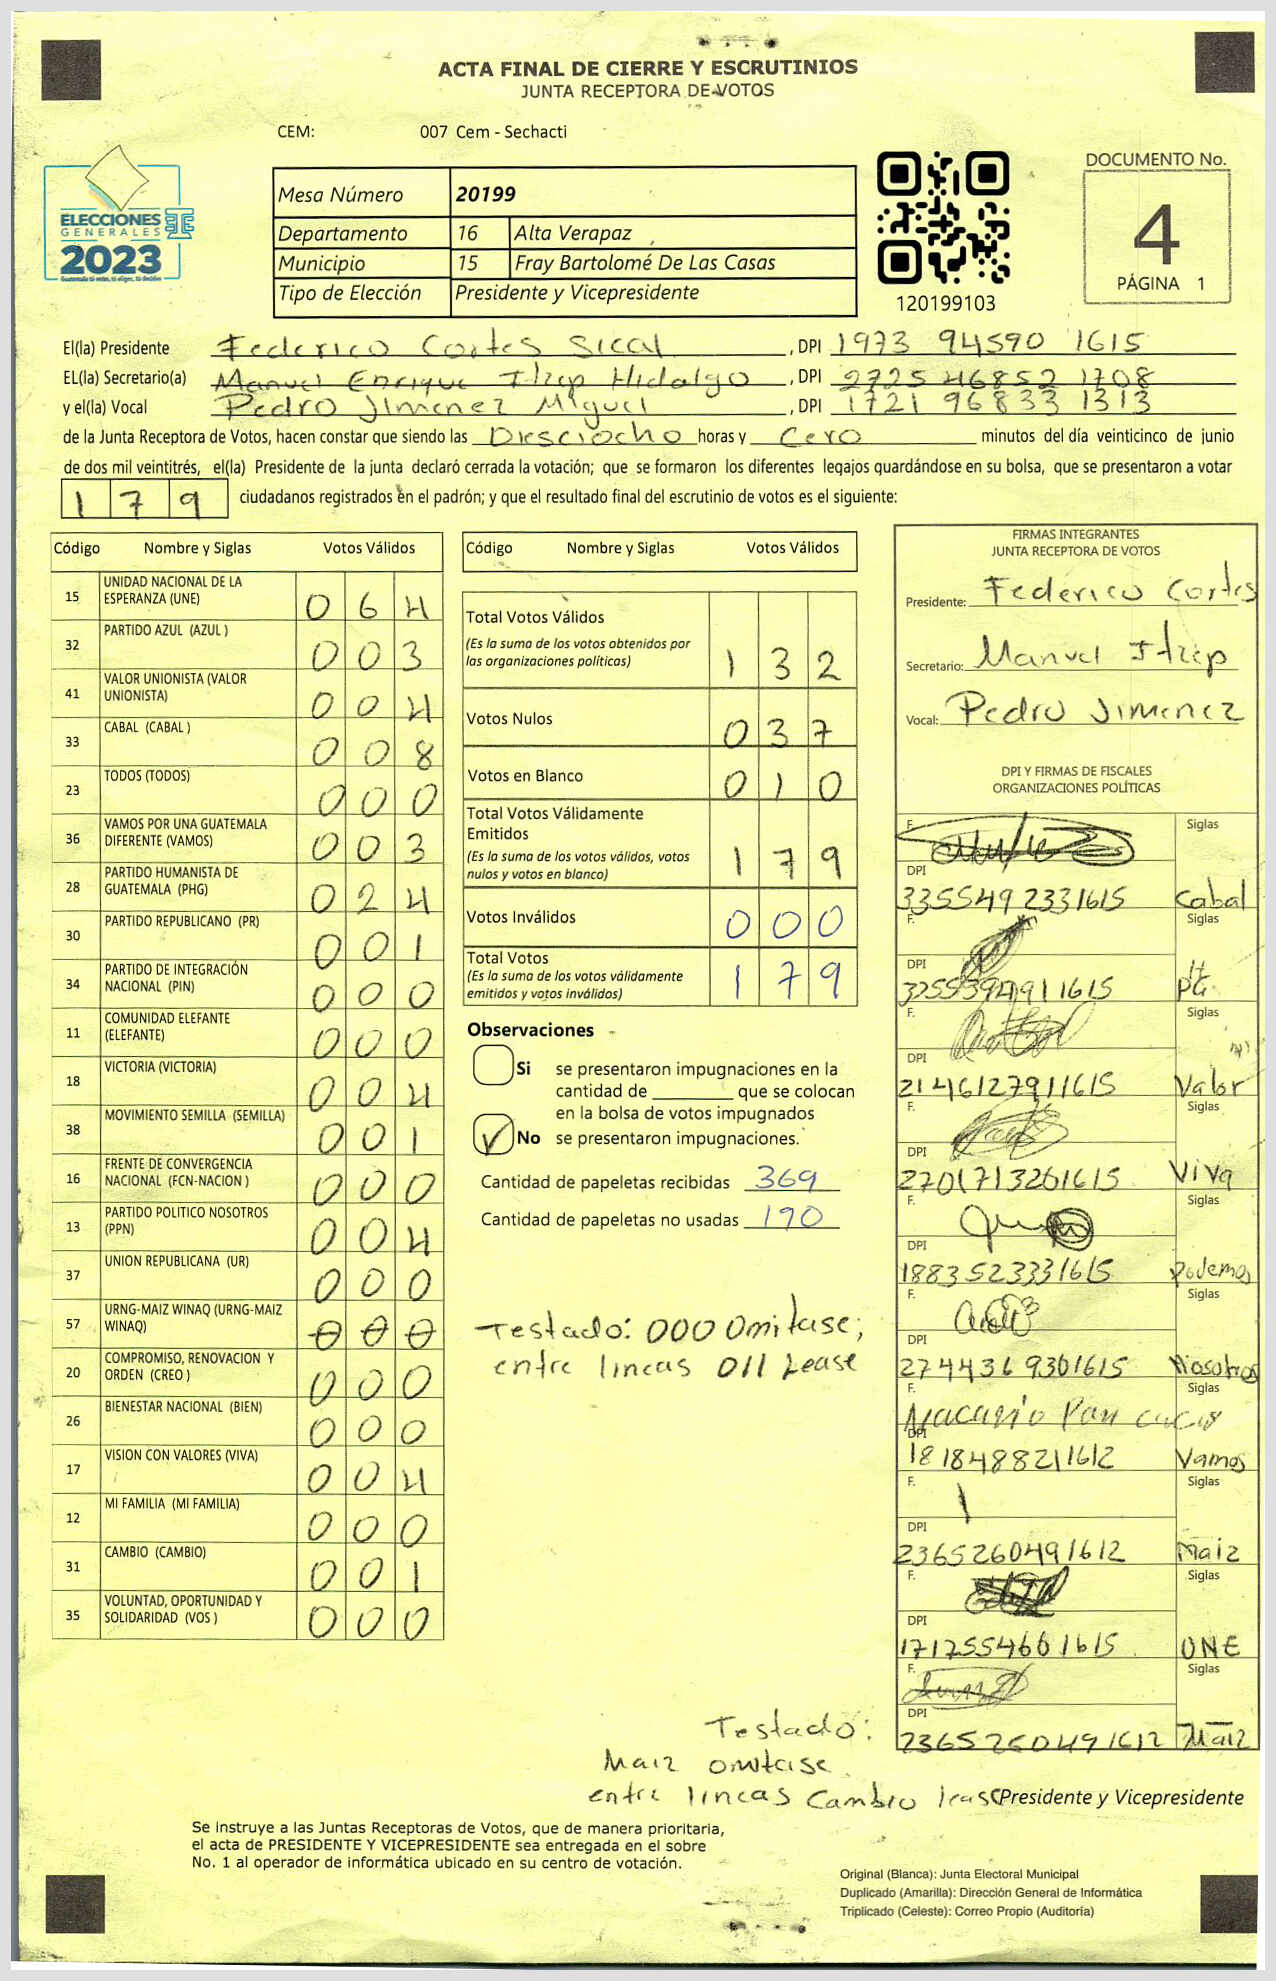 ACTA FINAL DE CIERRE Y ESCRUTINIOS
JUNTA RECEPTORA DE VOTOS
CEM: 007 Cem - Sechacti
DOCUMENTO No.
4
PÁGINA 1
ELECCIONES
GENERALES
2023
Mesa Número 20199
Departamento 16 Alta Verapaz
Municipio 15 Fray Bartolomé De Las Casas
Tipo de Elección Presidente y Vicepresidente
120199103
El(la) Presidente Federico Cortes Sical, DPI 1973 94590 1615
EL(la) Secretario(a) Manuel Enrique Itzep Hidalgo, DPI 2725 46852 1708
y el(la) Vocal Pedro Jimenez Miguel, DPI 1721 96833 1313
de la Junta Receptora de Votos, hacen constar que siendo las Diesciocho horas y Cero minutos del día veinticinco de junio
de dos mil veintitrés, el(la) Presidente de la junta declaró cerrada la votación; que se formaron los diferentes legajos quardándose en su bolsa, que se presentaron a votar
179 ciudadanos registrados en el padrón; y que el resultado final del escrutinio de votos es el siguiente:
Código Nombre y Siglas Votos Válidos
15 UNIDAD NACIONAL DE LA ESPERANZA (UNE) 064
32 PARTIDO AZUL (AZUL ) 003
41 VALOR UNIONISTA (VALOR UNIONISTA) 004
33 CABAL (CABAL ) 008
23 TODOS (TODOS) 000
36 VAMOS POR UNA GUATEMALA DIFERENTE (VAMOS) 003
28 PARTIDO HUMANISTA DE GUATEMALA (PHG) 024
30 PARTIDO REPUBLICANO (PR) 001
34 PARTIDO DE INTEGRACIÓN NACIONAL (PIN) 000
11 COMUNIDAD ELEFANTE (ELEFANTE) 000
18 VICTORIA (VICTORIA) 004
38 MOVIMIENTO SEMILLA (SEMILLA) 001
16 FRENTE DE CONVERGENCIA NACIONAL (FCN-NACION ) 000
13 PARTIDO POLITICO NOSOTROS (PPN) 004
37 UNION REPUBLICANA (UR) 000
57 URNG-MAIZ WINAQ (URNG-MAIZ WINAQ) 000
20 COMPROMISO, RENOVACION Y ORDEN (CREO ) 000
26 BIENESTAR NACIONAL (BIEN) 000
17 VISION CON VALORES (VIVA) 004
12 MI FAMILIA (MI FAMILIA) 000
31 CAMBIO (CAMBIO) 001
35 VOLUNTAD, OPORTUNIDAD Y SOLIDARIDAD (VOS ) 000
Código Nombre y Siglas Votos Válidos
Total Votos Válidos 132
(Es la suma de los votos obtenidos por
las organizaciones políticas)
Votos Nulos 037
Votos en Blanco 010
Total Votos Válidamente
Emitidos 179
(Es la suma de los votos válidos, votos
nulos y votos en blanco)
Votos Inválidos 000
Total Votos 179
(Es la suma de los votos válidamente
emitidos y votos inválidos)
Observaciones
Si se presentaron impugnaciones en la
cantidad de ________ que se colocan
en la bolsa de votos impugnados
No se presentaron impugnaciones.
Cantidad de papeletas recibidas 369
Cantidad de papeletas no usadas 190
Testado: 000 Omitase;
entre lineas 011 Lease
FIRMAS INTEGRANTES
JUNTA RECEPTORA DE VOTOS
Presidente: Federico Cortes
Secretario: Manuel Itzep
Vocal: Pedro Jimenez
DPI Y FIRMAS DE FISCALES
ORGANIZACIONES POLÍTICAS
F. Siglas
DPI
3355492331615 Cabal
F. Siglas
DPI
F. Siglas
DPI
2146127911615 Valor
F. Siglas
DPI
2701713261615 Viva
F. Siglas
DPI
1883523331615 Podemos
F. Siglas
DPI
2744369301615 Nosotros
F. Macario Pan Siglas
DPI
1818488211612 Vamos
F. Siglas
DPI
2365260491612 Maiz
F. Siglas
DPI
1717554661615 UNE
F. Siglas
DPI
2365260491612 Maiz
Testado:
Maiz omitase
entre lineas Cambio lease
Presidente y Vicepresidente
Se instruye a las Juntas Receptoras de Votos, que de manera prioritaria,
el acta de PRESIDENTE Y VICEPRESIDENTE sea entregada en el sobre
No. 1 al operador de informática ubicado en su centro de votación.
Original (Blanca): Junta Electoral Municipal
Duplicado (Amarilla): Dirección General de Informática
Triplicado (Celeste): Correo Propio (Auditoría)